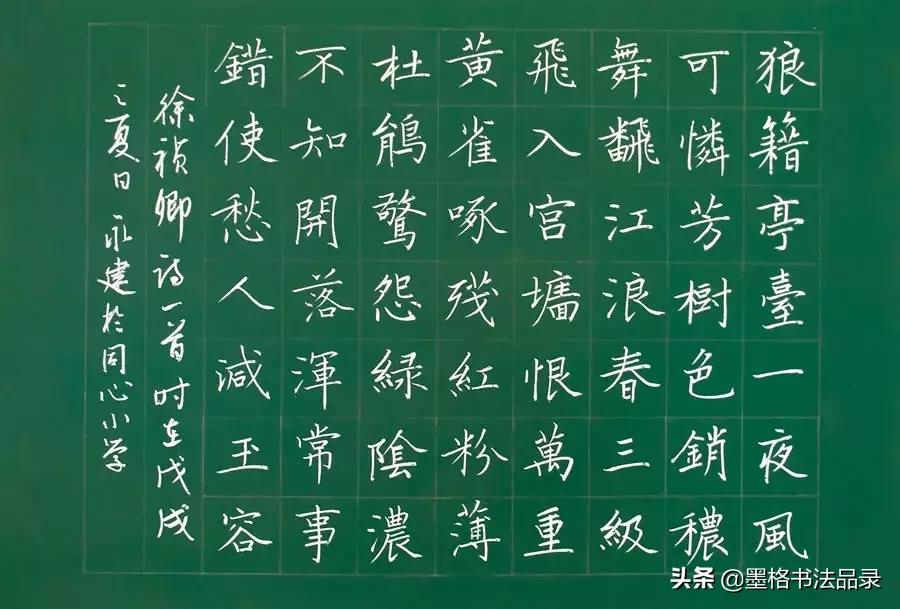 狼籍亭臺一夜風
可憐芳樹色銷穠
舞飜江浪春三級
飛入宮墻恨萬重
黃雀啄殘紅粉薄
杜鵑驚怨綠陰濃
不知開落渾常事
錯使愁人減玉容
徐禎卿詩一首时在戊戌
之夏日永建於同心小学
头条@墨格书法品录